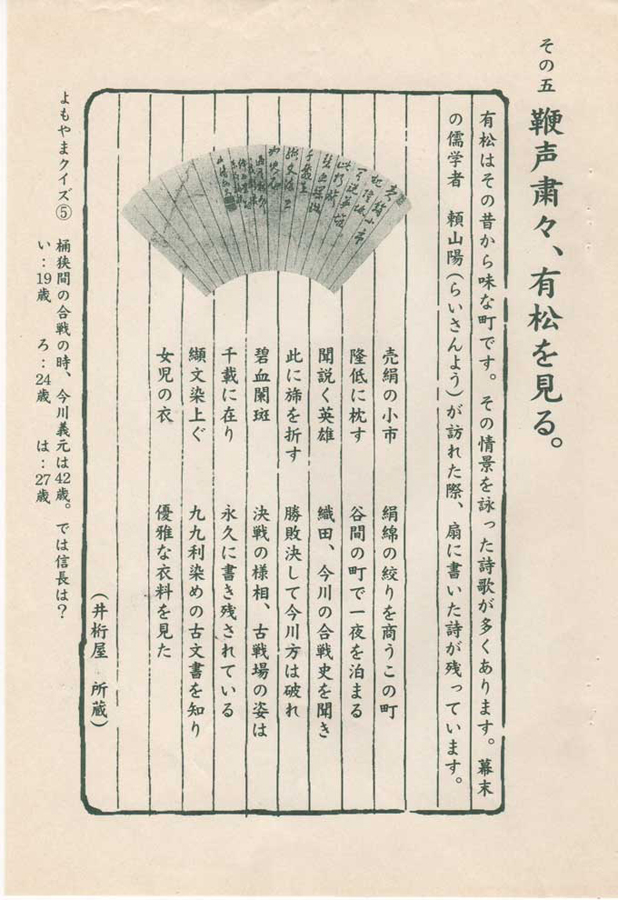 その五
鞭声粛々、有松を見る。
有松はその昔から味な町です。その情景を詠った詩歌が多くあります。幕末
の儒学者　頼山陽(らいさんよう)が訪れた際、扇に書いた詩が残っています。
売絹の小市　絹綿の絞りを商うこの町
隆低に枕す　谷間の町で一夜を泊まる
聞説く英雄　織田、今川の合戦史を聞き
此に旆を折す　勝敗決して今川方は破れ
碧血闌斑　決戦の様相、古戦場の姿は
千載に在り　永久に書き残されている
纈文染上ぐ　九九利染めの古文書を知り
女児の衣　優雅な衣料を見た
(井桁屋　所蔵)
よもやまクイズ⑤
桶狭間の合戦の時、今川義元は42歳。では信長は？
い：19歳　ろ：24歳　は：27歳